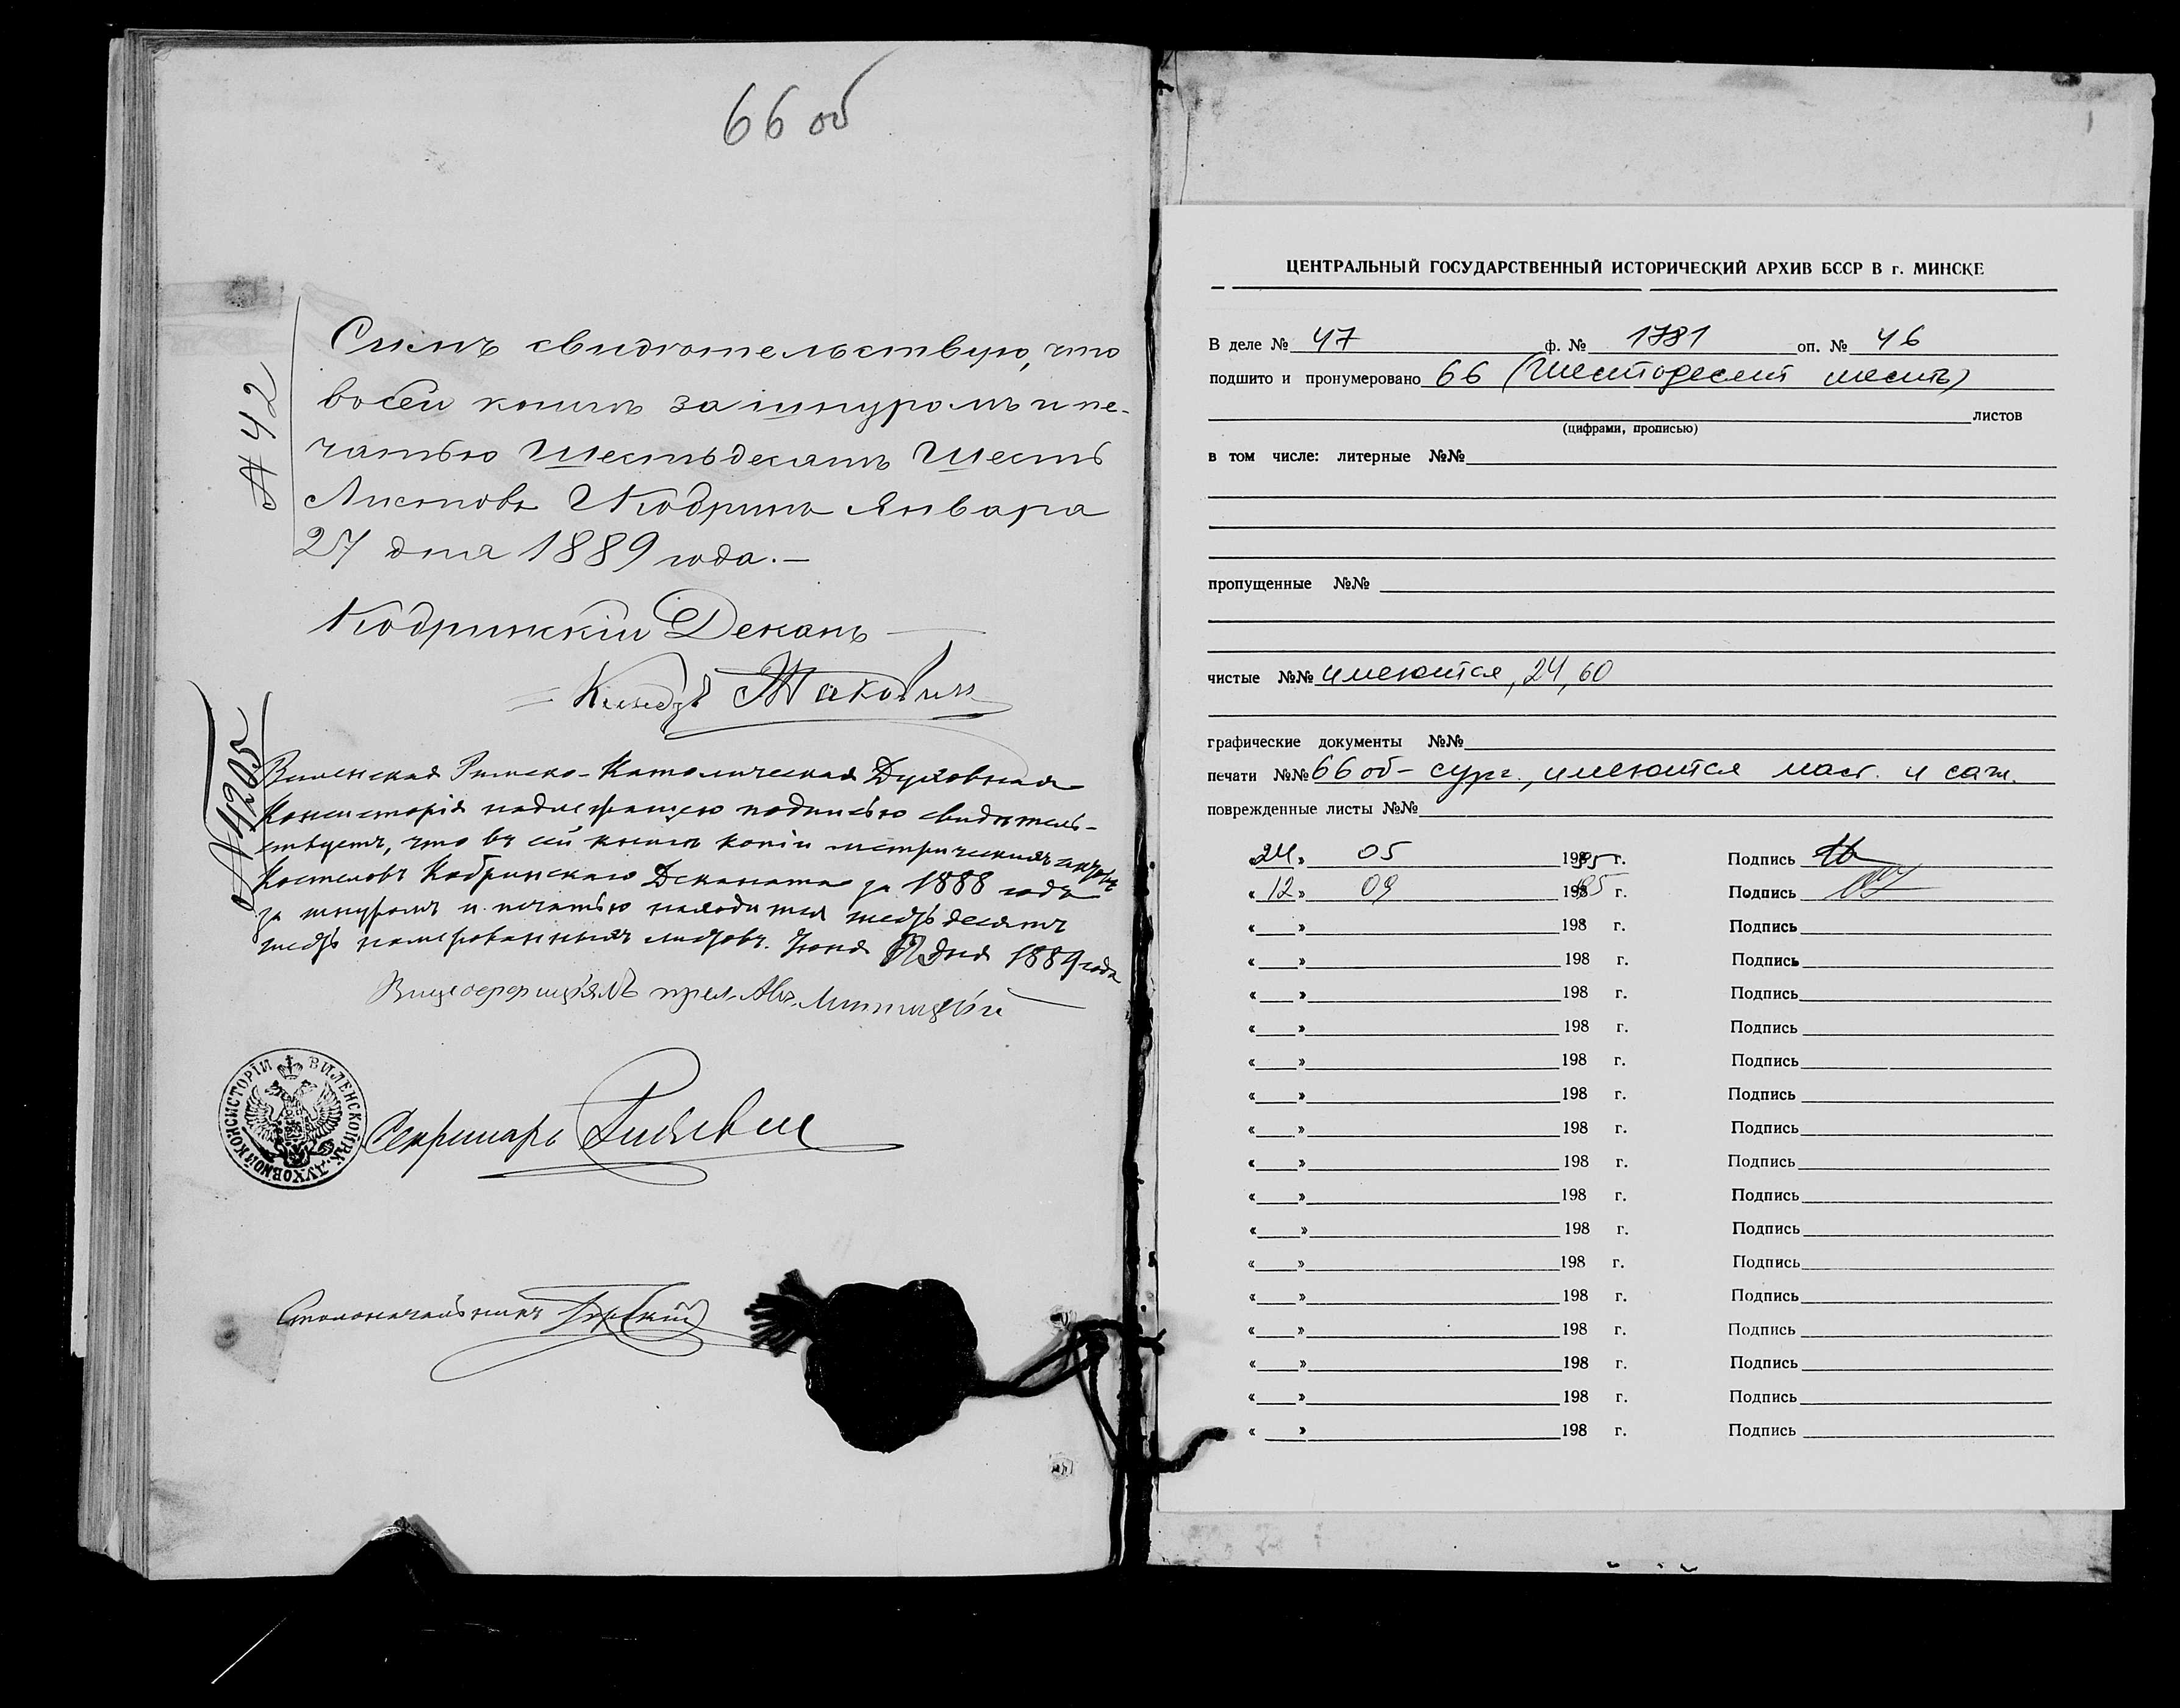 66 об
№ 42
Симъ свидѣтельствую, что
въ сей книгѣ за шнуромъ и пе-
чатью шестьдесятъ шесть
листовъ Кобринъ Января
27 дня 1889 года.—
Кобринскій Деканъ
Ксендзъ
№ 4205
Виленская Римско-Католическая Духовная
Консисторія надлежащею подписью свидѣтель-
ствуетъ, что въ сей книгѣ копіи метрическихъ актовъ
Костеловъ Кобринскаго Деканата за 1888 годъ
за шнуромъ и печатью находится шестьдесятъ
шесть нумерованныхъ листовъ. Іюня дня 1889 года
Вицеоффиціалъ прел.
ВИЛЕНСКОЙ Р.К. ДУХОВНОЙ КОНСИСТОРІИ
Секретарь
Столоначальникъ
ЦЕНТРАЛЬНЫЙ ГОСУДАРСТВЕННЫЙ ИСТОРИЧЕСКИЙ АРХИВ БССР В г. МИНСКЕ
В деле № 47 ф. № 1781 оп. № 46
подшито и пронумеровано 66 (шестьдесят шесть)
листов
(цифрами, прописью)
в том числе: литерные №№
пропущенные №№
чистые №№ имеются, 24, 60
графические документы №№
печати №№ 66 об - сург., имеются маст. и саж.
поврежденные листы №№
«24» 05 1985 г. Подпись
«12» 09 1985 г. Подпись
« » 198 г. Подпись
« » 198 г. Подпись
« » 198 г. Подпись
« » 198 г. Подпись
« » 198 г. Подпись
« » 198 г. Подпись
« » 198 г. Подпись
« » 198 г. Подпись
« » 198 г. Подпись
« » 198 г. Подпись
« » 198 г. Подпись
« » 198 г. Подпись
« » 198 г. Подпись
« » 198 г. Подпись
« » 198 г. Подпись
« » 198 г. Подпись